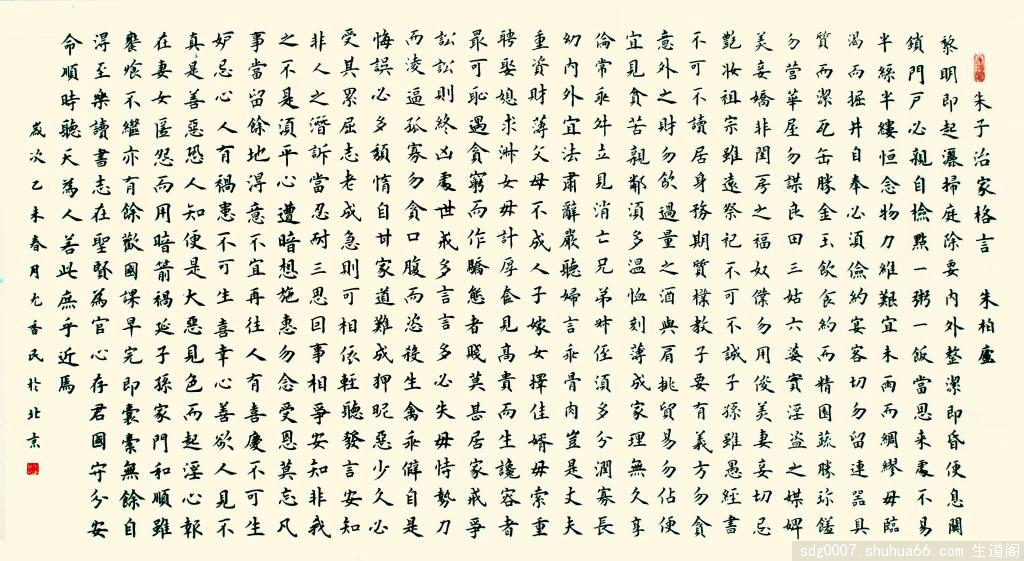 朱子治家格言 朱柏廬
黎明即起灑掃庭除要內外整潔即昏便息關
鎖門戶必親自檢點一粥一飯當思來處不易
半絲半縷恒念物力維艱宜未雨而綢繆毋臨
渴而掘井自奉必須儉約宴客切勿留連器具
質而潔瓦缶勝金玉飲食約而精園蔬勝珍饈
勿營華屋勿謀良田三姑六婆實淫盜之媒婢
美妾嬌非閨房之福奴僕勿用俊美妻妾切忌
艷妝祖宗雖遠祭祀不可不誠子孫雖愚經書
不可不讀居身務期質樸教子要有義方勿貪
意外之財勿飲過量之酒與肩挑貿易勿佔便
宜見貧苦親鄰須多溫恤刻薄成家理無久享
倫常乖舛立見消亡兄弟叔侄須多分潤寡長
幼內外宜法肅辭嚴聽婦言乖骨肉豈是丈夫
重資財薄父母不成人子嫁女擇佳婿毋索重
聘娶媳求淑女毋計厚奩見高貴而生讒容者
最可恥遇貧窮而作驕態者賤莫甚居家戒爭
訟訟則終凶處世戒多言言多必失毋恃勢力
而凌逼孤寡勿貪口腹而恣殺生禽乖僻自是
悔誤必多頹惰自甘家道難成狎昵惡少久必
受其累屈志老成急則可相依輕聽發言安知
非人之譖訴當忍耐三思因事相爭安知非我
之不是須平心遭暗想施惠勿念受恩莫忘凡
事當留餘地得意不宜再往人有喜慶不可生
妒忌心人有禍患不可生喜幸心善欲人見不
真是善惡恐人知便是大惡見色而起淫心報
在妻女匿怨而用暗箭禍延子孫家門和順雖
饔飧不繼亦有餘歡國課早完即囊橐無餘自
得至樂讀書志在聖賢為官心存君國守分安
命順時聽天為人若此庶乎近焉
歲次乙未春月尤香民於北京
sdg0007.shuhua66.com 生道阁